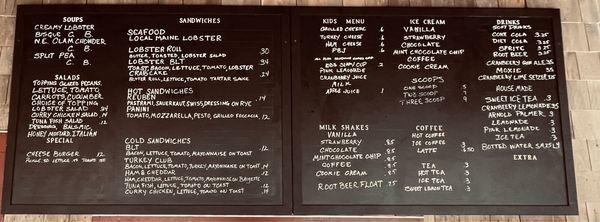 SOUPS
CREAMY LOBSTER
BISQUE C. B.
N.E. CLAM CHOWDER
C. B.
SPLIT PEA
C. B.
SALADS
TOPPING GLAZED PECANS,
LETTUCE, TOMATO
CARROTS, CUCUMBER
CHOICE OF TOPPING
LOBSTER SALAD 34
CURRY CHICKEN SALAD 14
TUNA FISH SALAD 12
DRESSING, BALSAIC,
HONEY MUSTARD, ITALIAN
SPECIAL
CHEESE BURGER 12
SANDWICHES
SEAFOOD
LOCAL MAINE LOBSTER
LOBSTER ROLL 30
BUTTER, TOASTED, LOBSTER SALAD
LOBSTER BLT 34
TOAST, BACON, LETTUCE, TOMATO, LOBSTER
CRABCAKE 24
BUTTER ROLL, LETTUCE, TOMATO TARTAR SAUCE
HOT SANDWICHES
REUBEN 14
PASTRAMI, SAUERKRAUT, SWISS, DRESSING ON RYE
PANINI
TOMATO, MOZZARELLA, PESTO, GRILLED FOCCACIA, 12
COLD SANDWICHES
BLT 12
BACON, LETTUCE, TOMATO, MAYONNAISE ON TOAST
TURKEY CLUB
BACON, LETTUCE, TOMATO, TURKEY, MAYONNAISE ON TOAST 14
HAM & CHEDDAR 12
HAM, CHEDDAR, LETTUCE, TOMATO, MAYONNAISE ON BAGUETTE
TUNA FISH, LETTUCE, TOMATO ON TOAST 12
CURRY CHICKEN, LETTUCE, TOMATO ON TOAST 14
KIDS MENU
GRILLED CHEESE 6
TURKEY CHEESE 6
HAM CHEESE 6
PBJ 6
KIDS SOUP CUP
PINK LEMONADE
CRANBERRY JUICE
MILK
APPLE JUICE 1
ICE CREAM
VANILLA
STRAWBERRY
CHOCOLATE
MINT CHOCOLATE CHIP
COFFEE
COOKIE CREAM
SCOOPS
ONE SCOOP 5
TWO SCOOP 7
THREE SCOOP 9
DRINKS
SOFT DRINKS
COKE COLA 3.25
DIET COLA 3.25
SPRITE 3.25
ROOT BEER 3.25
CRANBERRY GIN ALE 3.5
MOXIE 3.5
CRANBERRY LIME SELTZER 3.25
HOUSE MADE
SWEET ICE TEA 3
CRANBERRY LEMONADE 3.5
ARNOLD PALMER 3
LEMONADE 3
PINK LEMONADE 3
ICE TEA 3
BOTTED WATER
EXTRA
MILK SHAKES
VANILLA
STRAWBERRY 8.5
CHOCOLATE 8.5
MINT CHOCOLATE CHIP 8.5
COFFEE 8.5
COOKIE CREAM 8.5
ROOT BEER FLOAT 8.5
COFFEE
HOT COFFEE 3
ICE COFFEE 3
LATTE 3.50
TEA 3
HOT TEA 3
ICE TEA 3
SWEET LEMON TEA 3